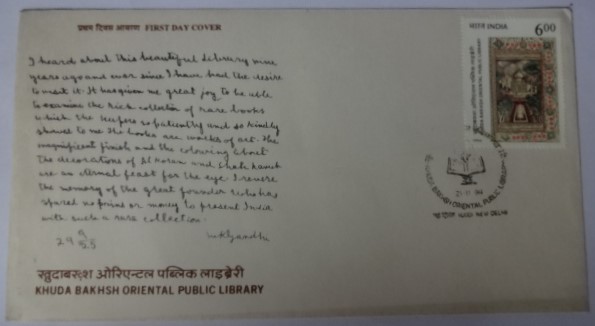 प्रथम दिवस आवरण FIRST DAY COVER
भारत INDIA 600
KHUDA BAKHSH ORIENTAL PUBLIC LIBRARY
I heard about this beautiful library nine
years ago and ever since I have had the desire
to visit it. It has given me great joy to be able
to examine the rich collection of rare books
which the keepers so patiently and so kindly
showed to me. The books are works of art. The
magnificent finish and the colouring about
the decorations of Al Koran and Shah
are an eternal feast for the eye. I revere
the memory of the great founder who has
spared no pains or money to present India
with such a rare collection.
29 9 25
MKGandhi
KHUDA BAKHSH ORIENTAL PUBLIC LIBRARY
NEW DELHI
खुदाबख़्श ओरिएन्टल पब्लिक लाइब्रेरी
KHUDA BAKHSH ORIENTAL PUBLIC LIBRARY